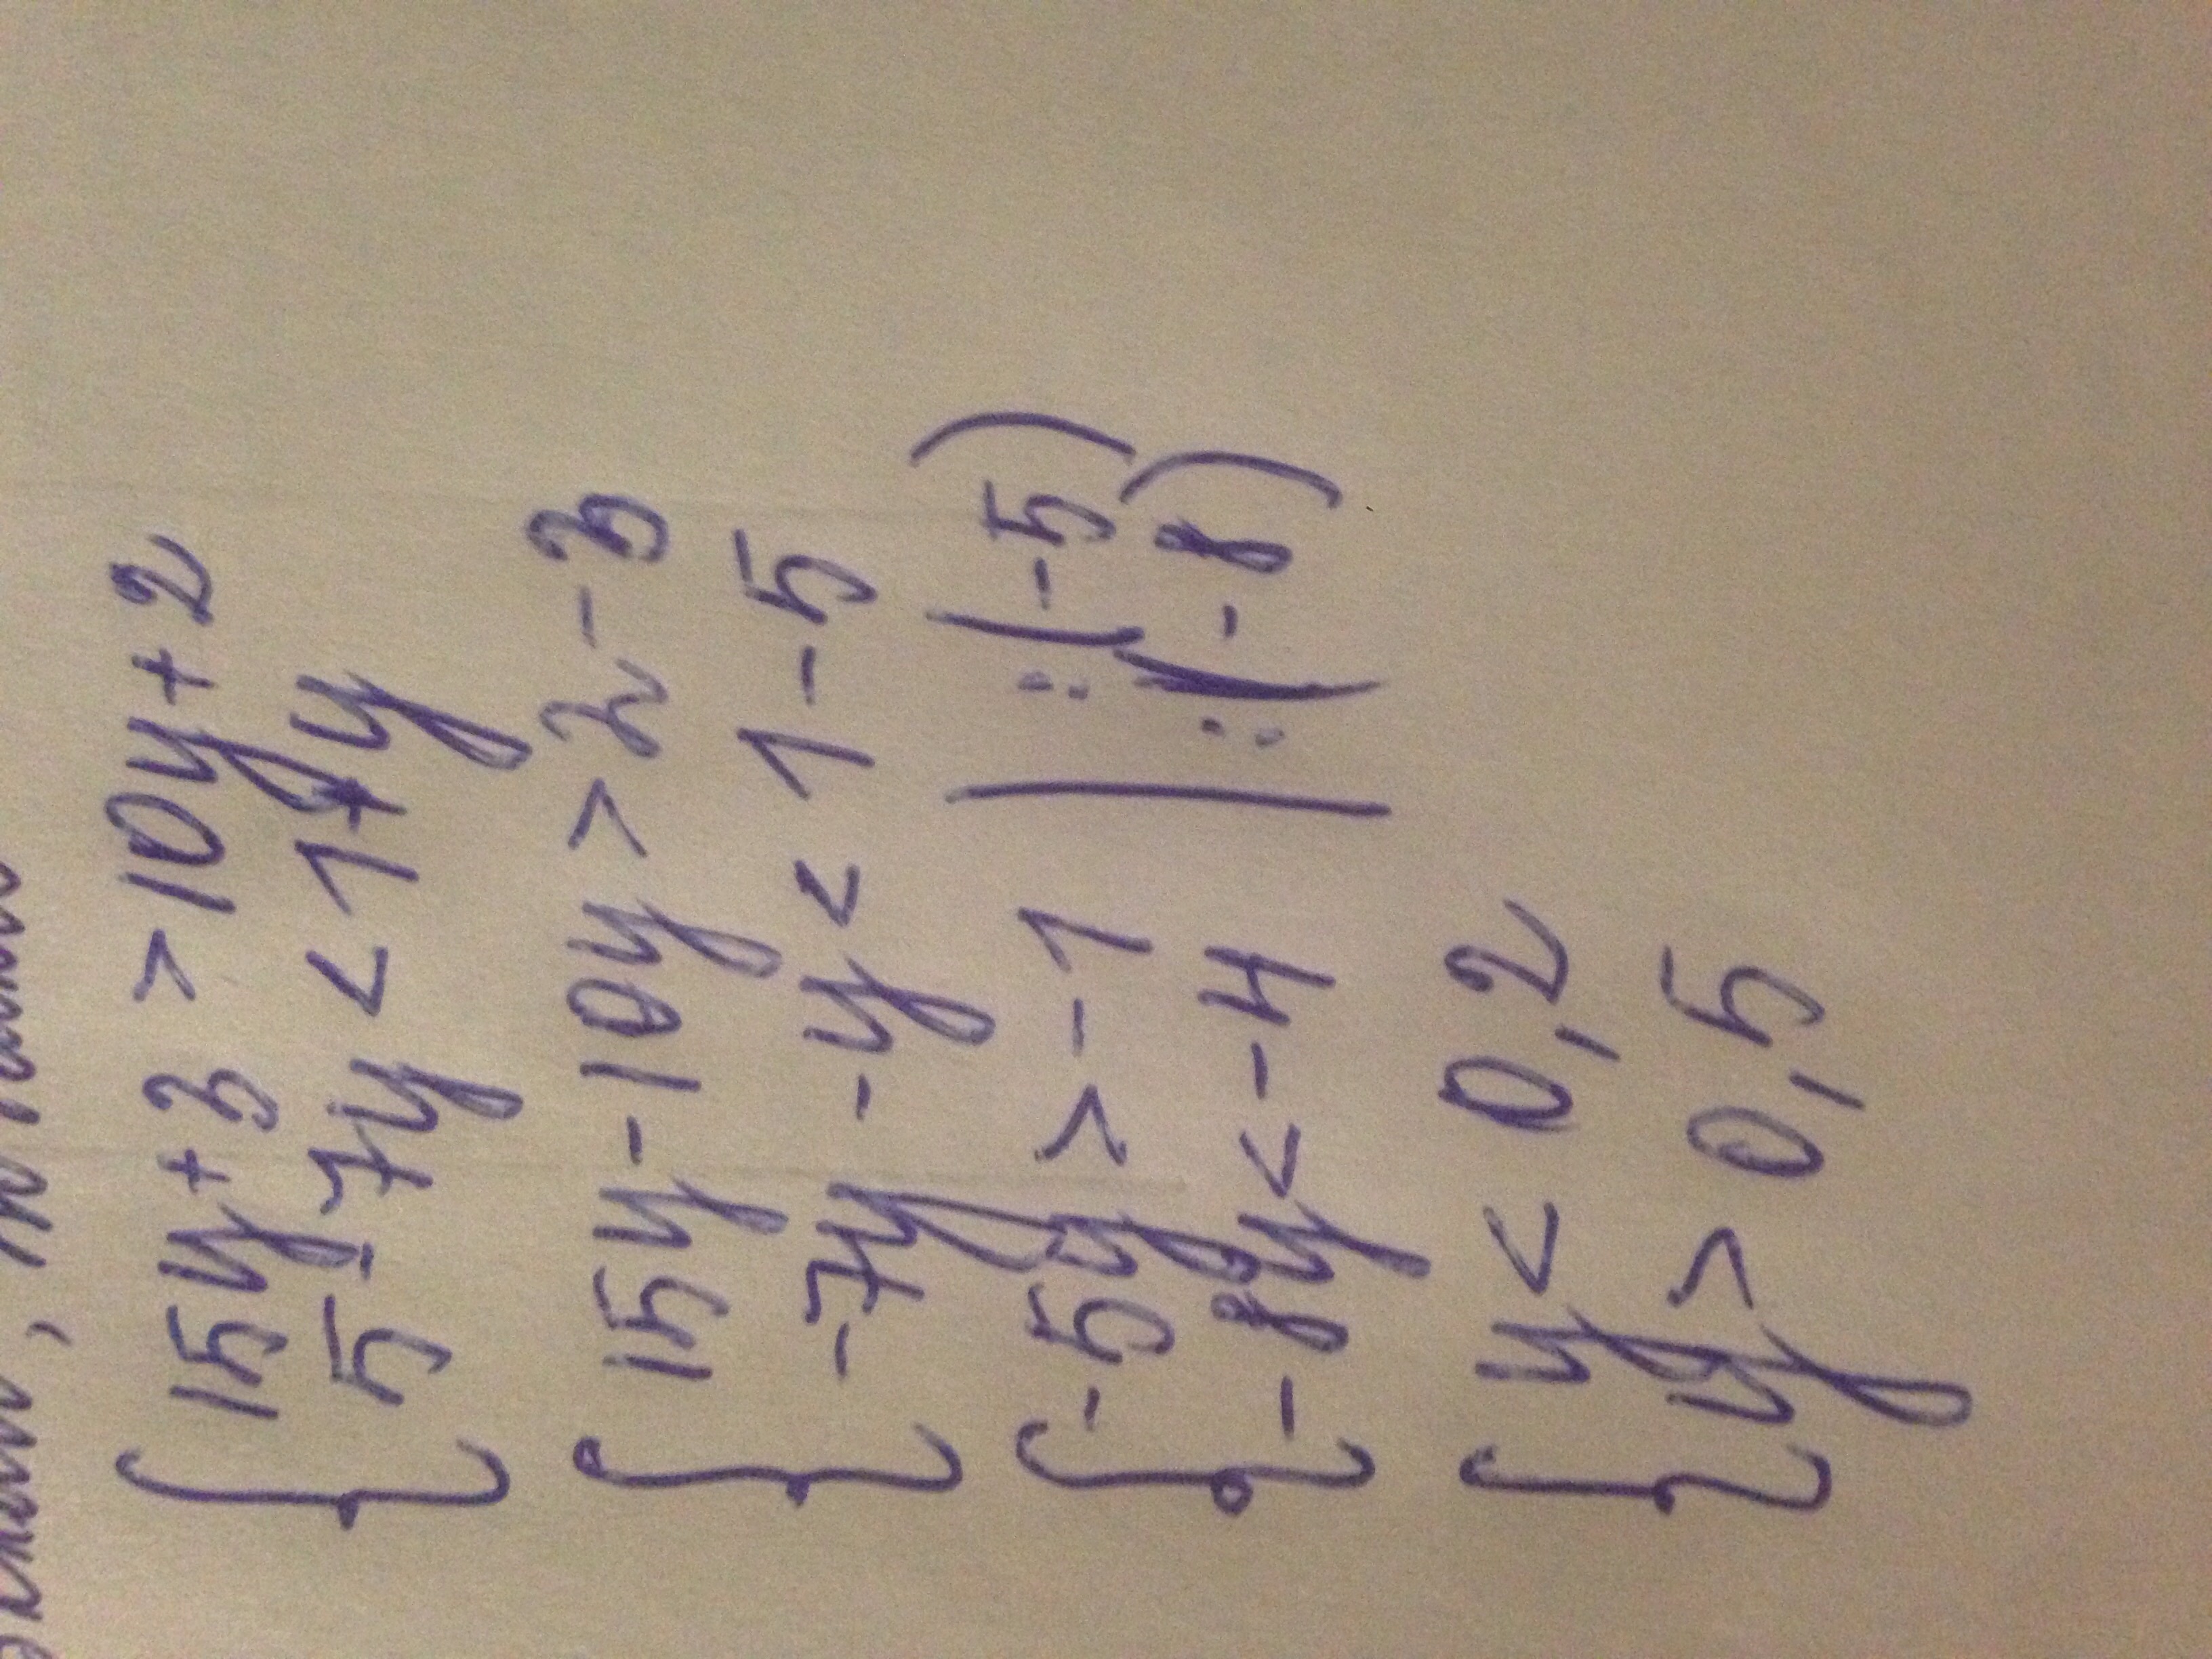 15y + 3 > 10y + 2
5 - 7y < 1 + y
15y - 10y > 2 - 3
-7y - y < 1 - 5
-5y > -1 | : (-5)
-8y < -4 | : (-8)
y < 0,2
y > 0,5